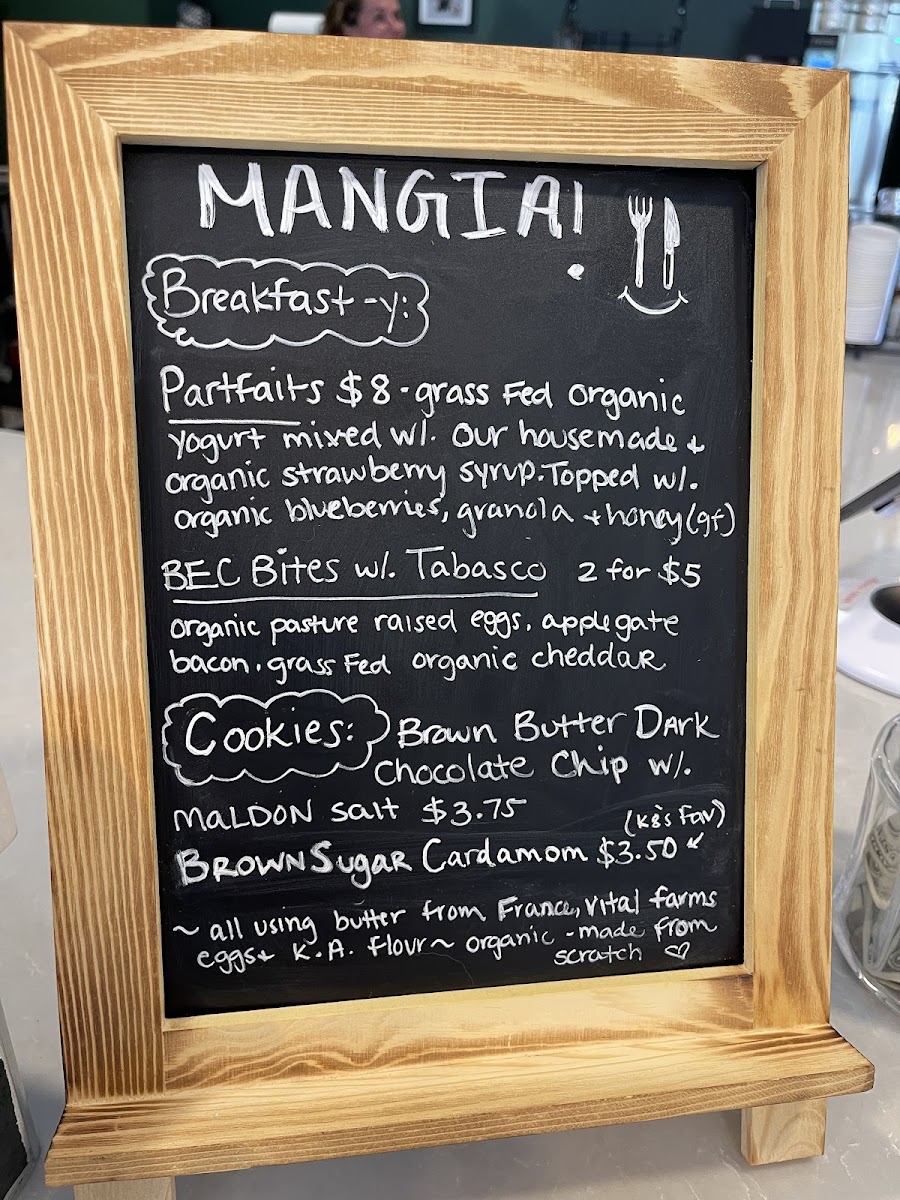 MANGIA!
Breakfast-y:
Partfaits $8 - grass Fed organic
yogurt mixed w/. our housemade +
organic strawberry syrup. Topped w/.
organic blueberries, granola + honey (gf)
BEC Bites w/. Tabasco 2 for $5
organic pasture raised eggs, applegate
bacon, grass Fed organic cheddar
Cookies: Brown Butter Dark
Chocolate Chip w/.
MALDON salt $3.75
(K8's Fav)
BROWN Sugar Cardamom $3.50
~ all using butter from France, vital farms
eggs + K.A. flour ~ organic - made from
scratch